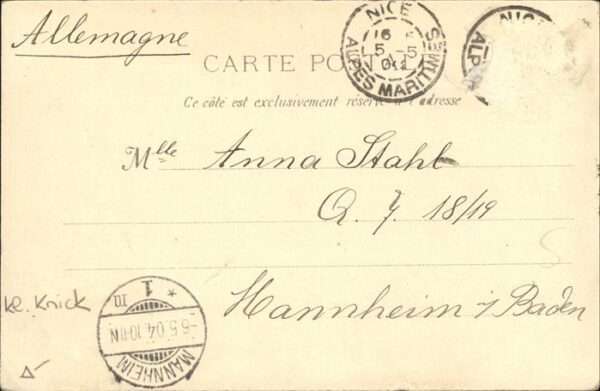 Allemagne
NICE
16 5
5 -5
04
ALPES MARITIMES
NIC
ALP
CARTE PO
Ce côté est exclusivement réservé à l'adresse
Mlle Anna Stahl
Q. 7. 18/19
Mannheim i/Baden
kl. Knick
* 1 m
-6.5.04.10-11N
MANNHEIM